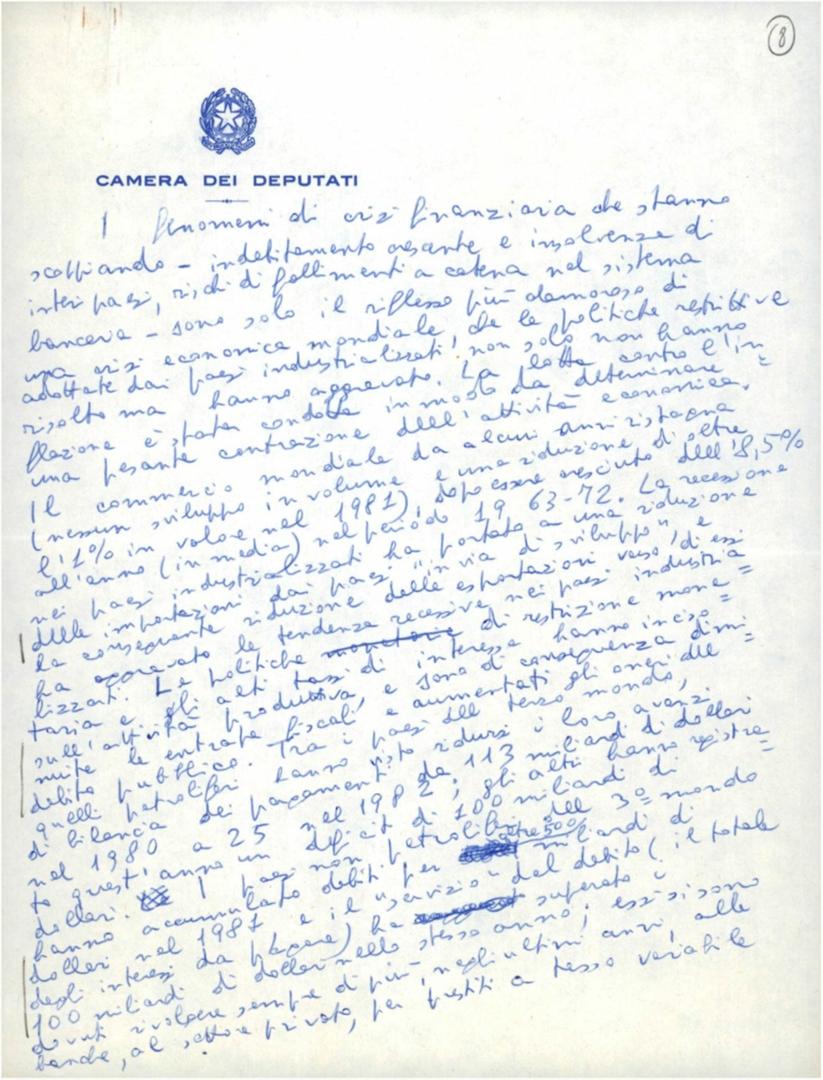 8
CAMERA DEI DEPUTATI
I fenomeni di crisi finanziaria che stanno
scoppiando - indebitamento pesante e insolvenze di
interi paesi, rischi di fallimenti a catena nel sistema
bancario - sono solo il riflesso più clamoroso di
una crisi economica mondiale, che le politiche restrittive
adottate dai paesi industrializzati, non solo non hanno
risolto ma hanno aggravato. La lotta contro l'in=
flazione è stata condotta in modo da determinare
una pesante contrazione dell'attività economica.
Il commercio mondiale da alcuni anni ristagna
(nessun sviluppo in volume e una riduzione di oltre
l'1% in valore nel 1981), dopo essere cresciuto dell'8,5%
all'anno (in media) nel periodo 1963-72. La recessione
nei paesi industrializzati ha portato a una riduzione
delle importazioni dai paesi "in via di sviluppo", e
la conseguente riduzione delle esportazioni verso di essi
ha aggravato le tendenze recessive nei paesi industria
lizzati. Le politiche monetarie di restrizione mone=
taria e gli alti tassi di interesse hanno inciso
sull'attività produttiva, e sono di conseguenza dimi=
nuite le entrate fiscali e aumentati gli oneri del
debito pubblico. Tra i paesi del terzo mondo,
quelli petroliferi hanno visto ridursi i loro avanzi
di bilancia dei pagamenti da 113 miliardi di dollari
nel 1980 a 25 nel 1982; gli altri hanno registra=
to quest'anno un deficit di 100 miliardi di
dollari. I paesi non petroliferi del 3º mondo
hanno accumulato debiti per oltre 500 miliardi di
dollari nel 1981 e il "servizio" del debito (il totale
degli interessi da pagare) ha superato i
100 miliardi di dollari nello stesso anno; essi si sono
dovuti rivolgere sempre di più, negli ultimi anni, alle
banche, al settore privato, per prestiti a tasso variabile